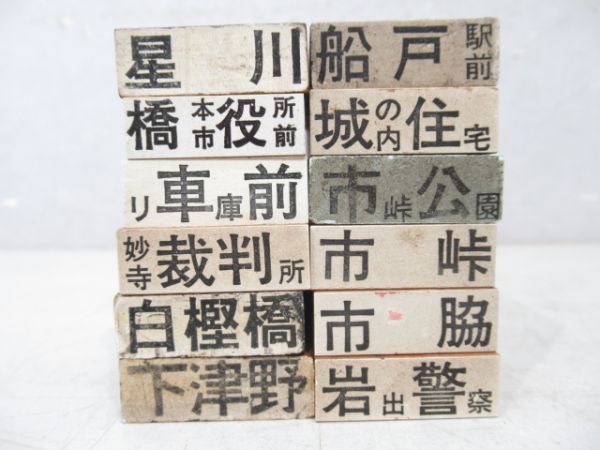 星川
橋本市役所前
リ車庫前
妙寺裁判所
白樫橋
下津野
船戸駅前
城の内住宅
市峠公園
市峠
市脇
岩出警察